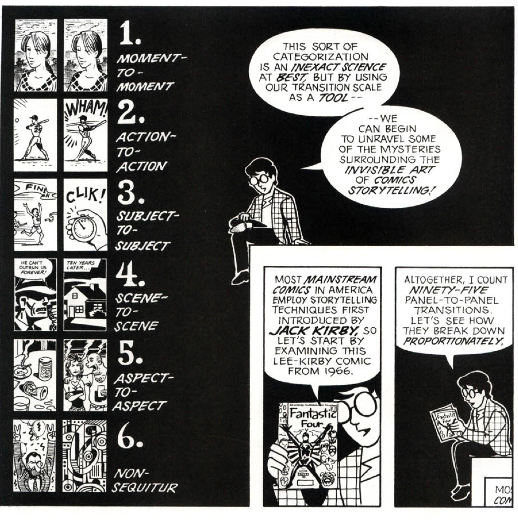 1.
MOMENT-
TO-
MOMENT
WHAM!
2.
ACTION-
TO-
ACTION
CLIK!
3.
SUBJECT-
TO-
SUBJECT
HE CAN'T
OUTRUN US
FOREVER!
TEN YEARS
LATER...
4.
SCENE-
TO-
SCENE
5.
ASPECT-
TO-
ASPECT
6.
NON-
SEQUITUR
THIS SORT OF
CATEGORIZATION
IS AN INEXACT SCIENCE
AT BEST, BUT BY USING
OUR TRANSITION SCALE
AS A TOOL--
--WE
CAN BEGIN
TO UNRAVEL SOME
OF THE MYSTERIES
SURROUNDING THE
INVISIBLE ART
OF COMICS
STORYTELLING!
MOST MAINSTREAM
COMICS IN AMERICA
EMPLOY STORYTELLING
TECHNIQUES FIRST
INTRODUCED BY
JACK KIRBY, SO
LET'S START BY
EXAMINING THIS
LEE-KIRBY COMIC
FROM 1966.
Fantastic
Four
ALTOGETHER, I COUNT
NINETY-FIVE
PANEL-TO-PANEL
TRANSITIONS.
LET'S SEE HOW
THEY BREAK DOWN
PROPORTIONATELY.
MOS
COM